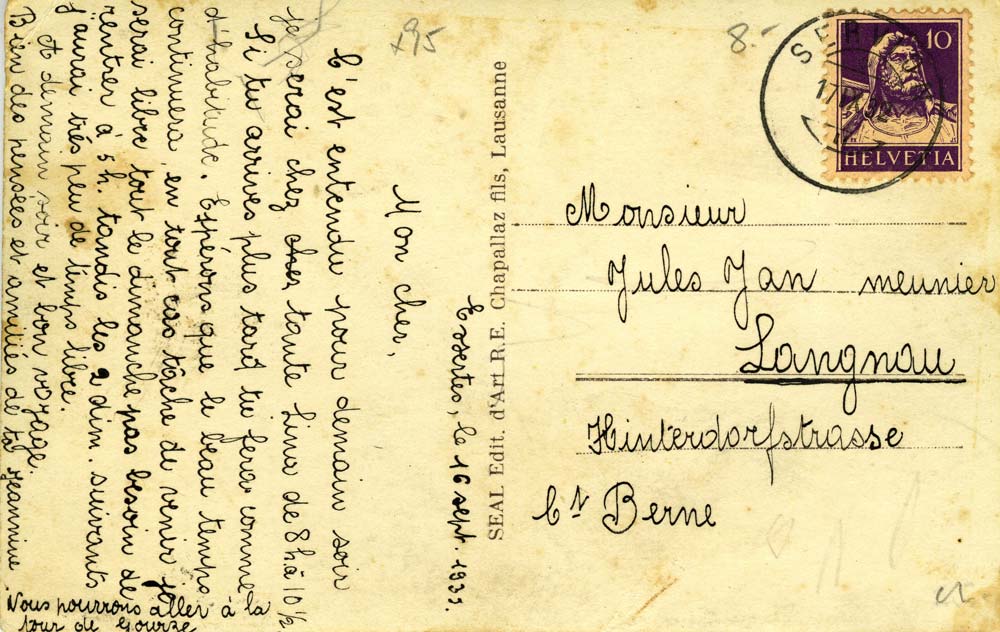 Essertes, le 16 sept. 1932.
Mon cher,
C'est entendu pour demain soir
je serai chez chez tante Lina de 8h à 10½
Si tu arrives plus tard tu feras comme
d'habitude. Espérons que le beau temps
continuera, en tout cas tâche de venir je
serai libre tout le dimanche pas besoin de
rentrer à 5h. tandis les 2 dim. suivants
j'aurai très peu de temps libre.
A demain soir et bon voyage.
Bien des pensées et amitiés de ta Jeannine
Nous pourrons aller à la
tour de Gourze
SEAL Edit. d'Art R.E. Chapallaz fils, Lausanne
x95
8.-
10
HELVETIA
Monsieur
Jules Jan meunier
Langnau
Hinterdorfstrasse
Ct Berne